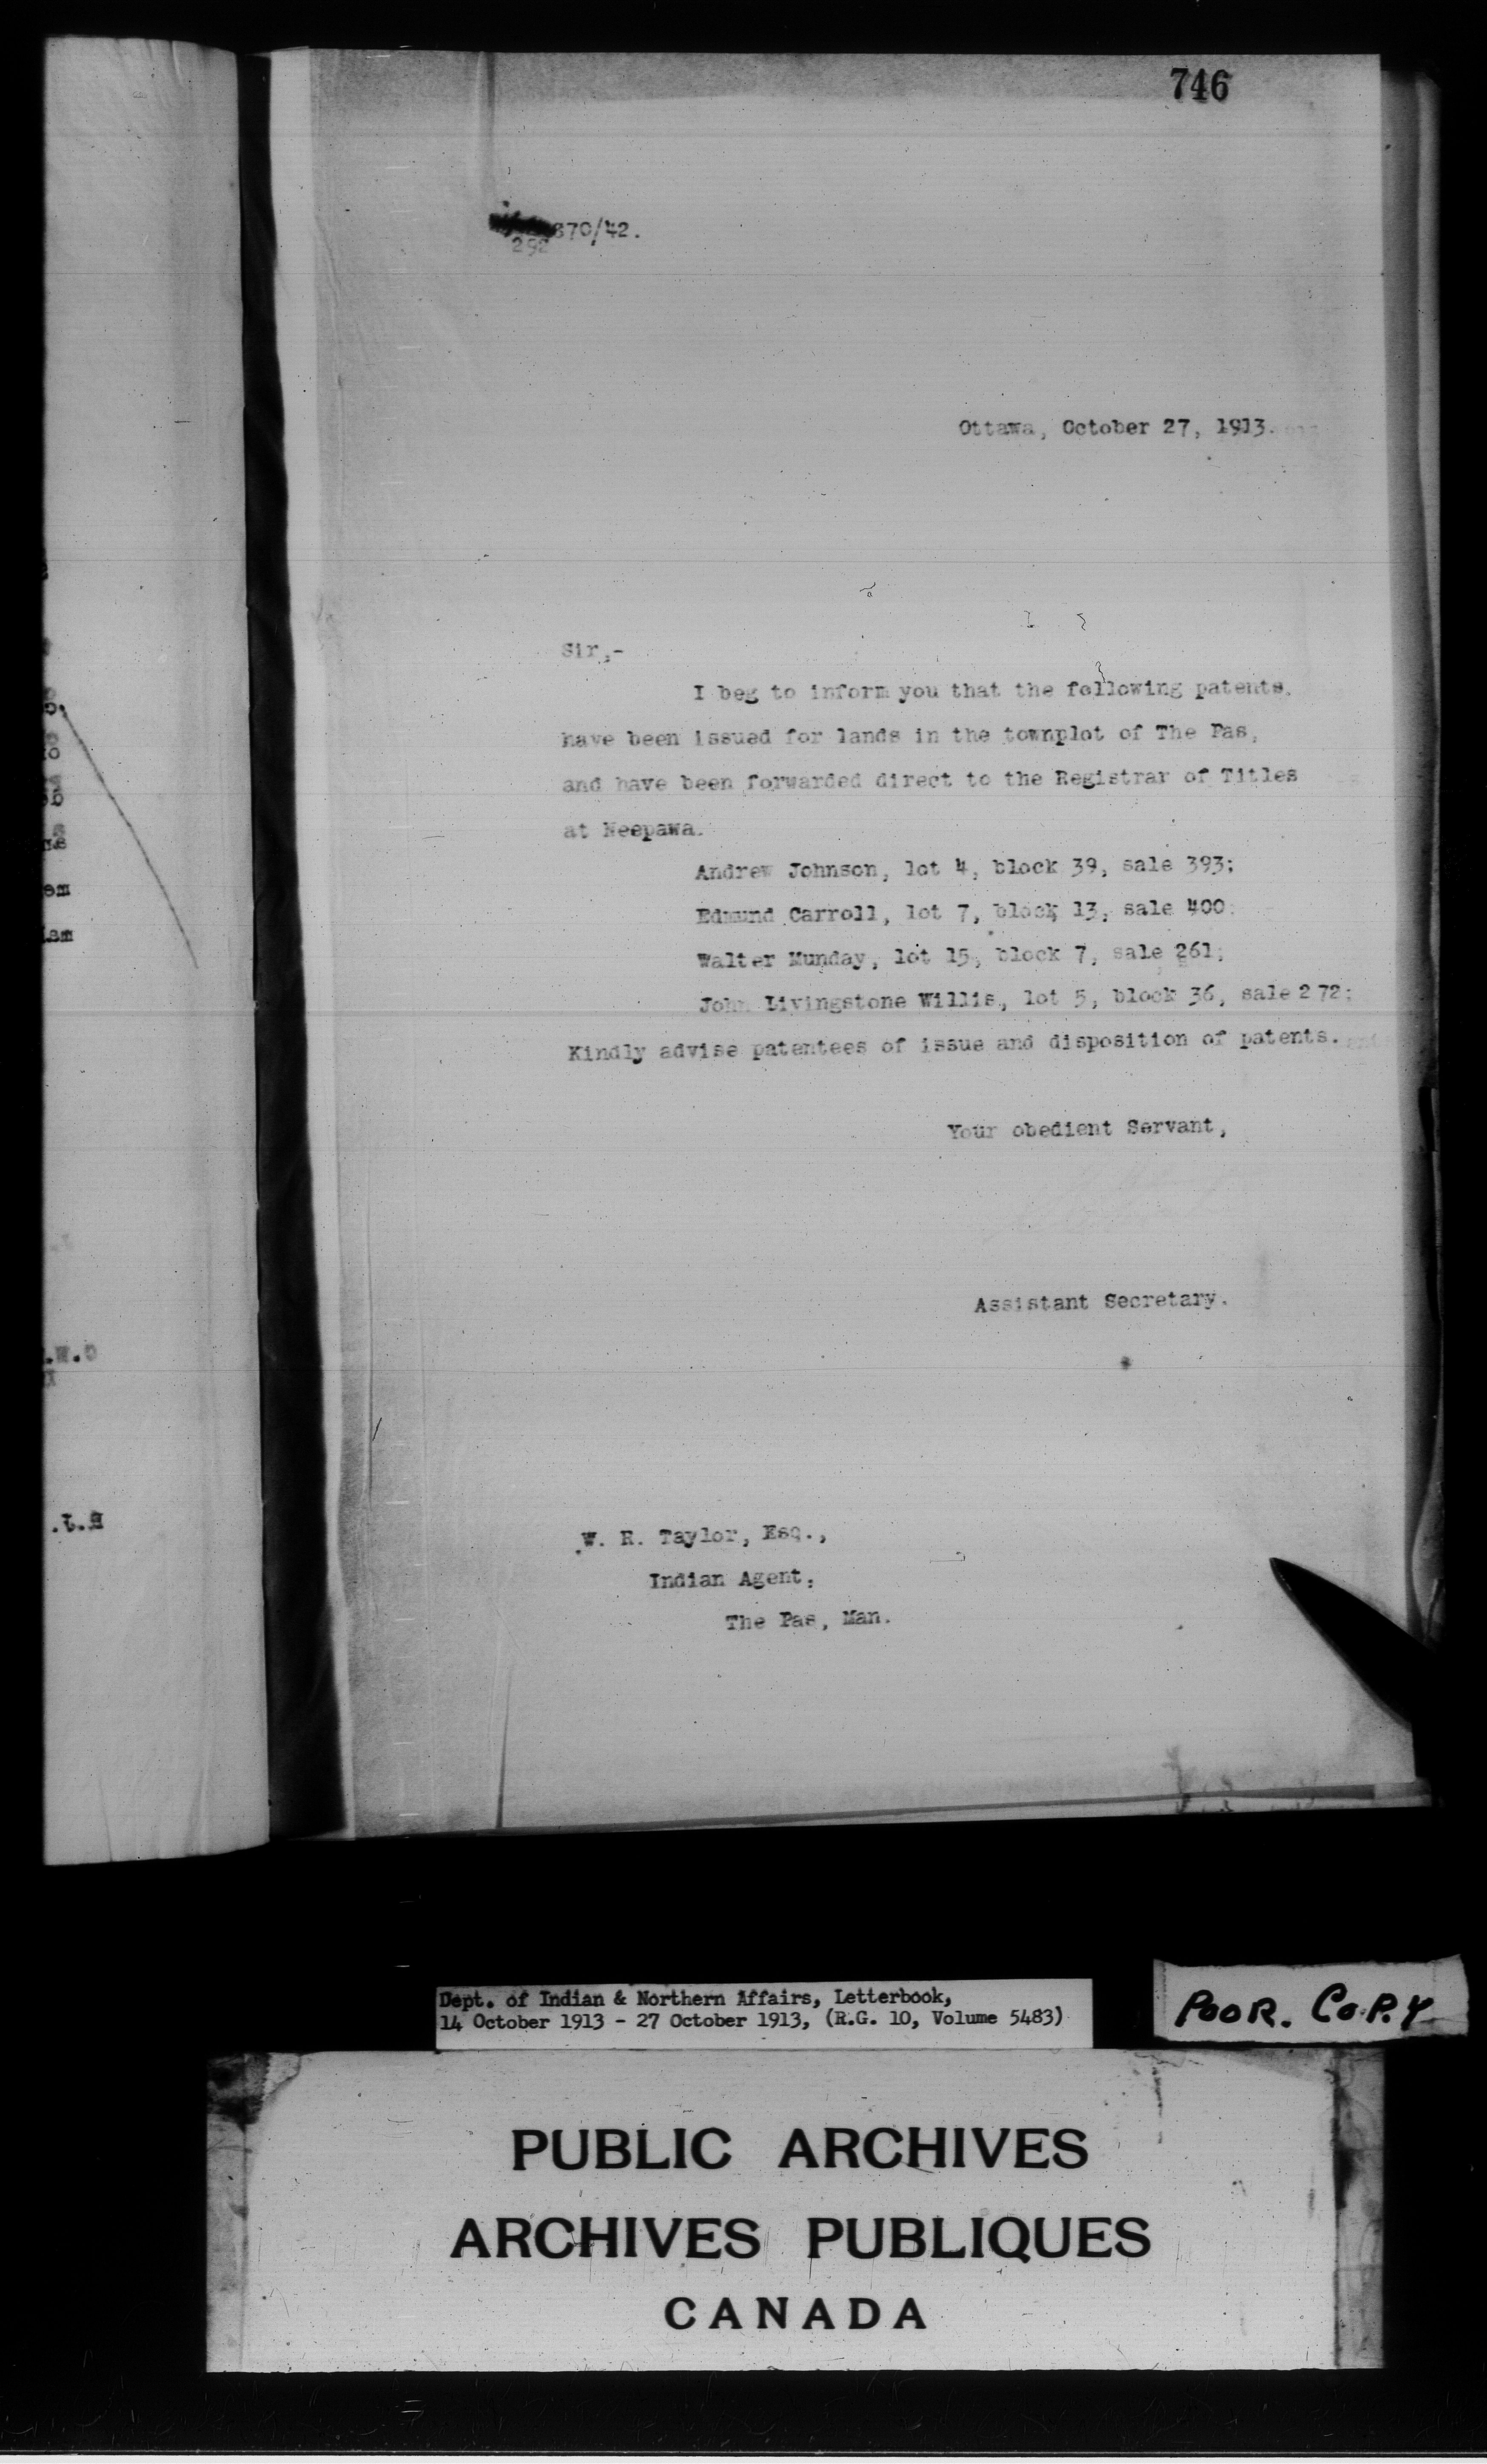 746
370/42.
292
Ottawa, October 27, 1913.
Sir,-
I beg to inform you that the following patents,
have been issued for lands in the townplot of The Pas,
and have been forwarded direct to the Registrar of Titles
at Neepawa.
Andrew Johnson, lot 4, block 39, sale 393;
Edmund Carroll, lot 7, block 13, sale 400;
Walter Munday, lot 15, block 7, sale 261;
John Livingstone Willis, lot 5, block 36, sale 272;
Kindly advise patentees of issue and disposition of patents.
Your obedient Servant,
Assistant Secretary.
W. R. Taylor, Esq.,
Indian Agent,
The Pas, Man.
Dept. of Indian & Northern Affairs, Letterbook,
14 October 1913 - 27 October 1913, (R.G. 10, Volume 5483)
POOR. COPY
PUBLIC ARCHIVES
ARCHIVES PUBLIQUES
CANADA